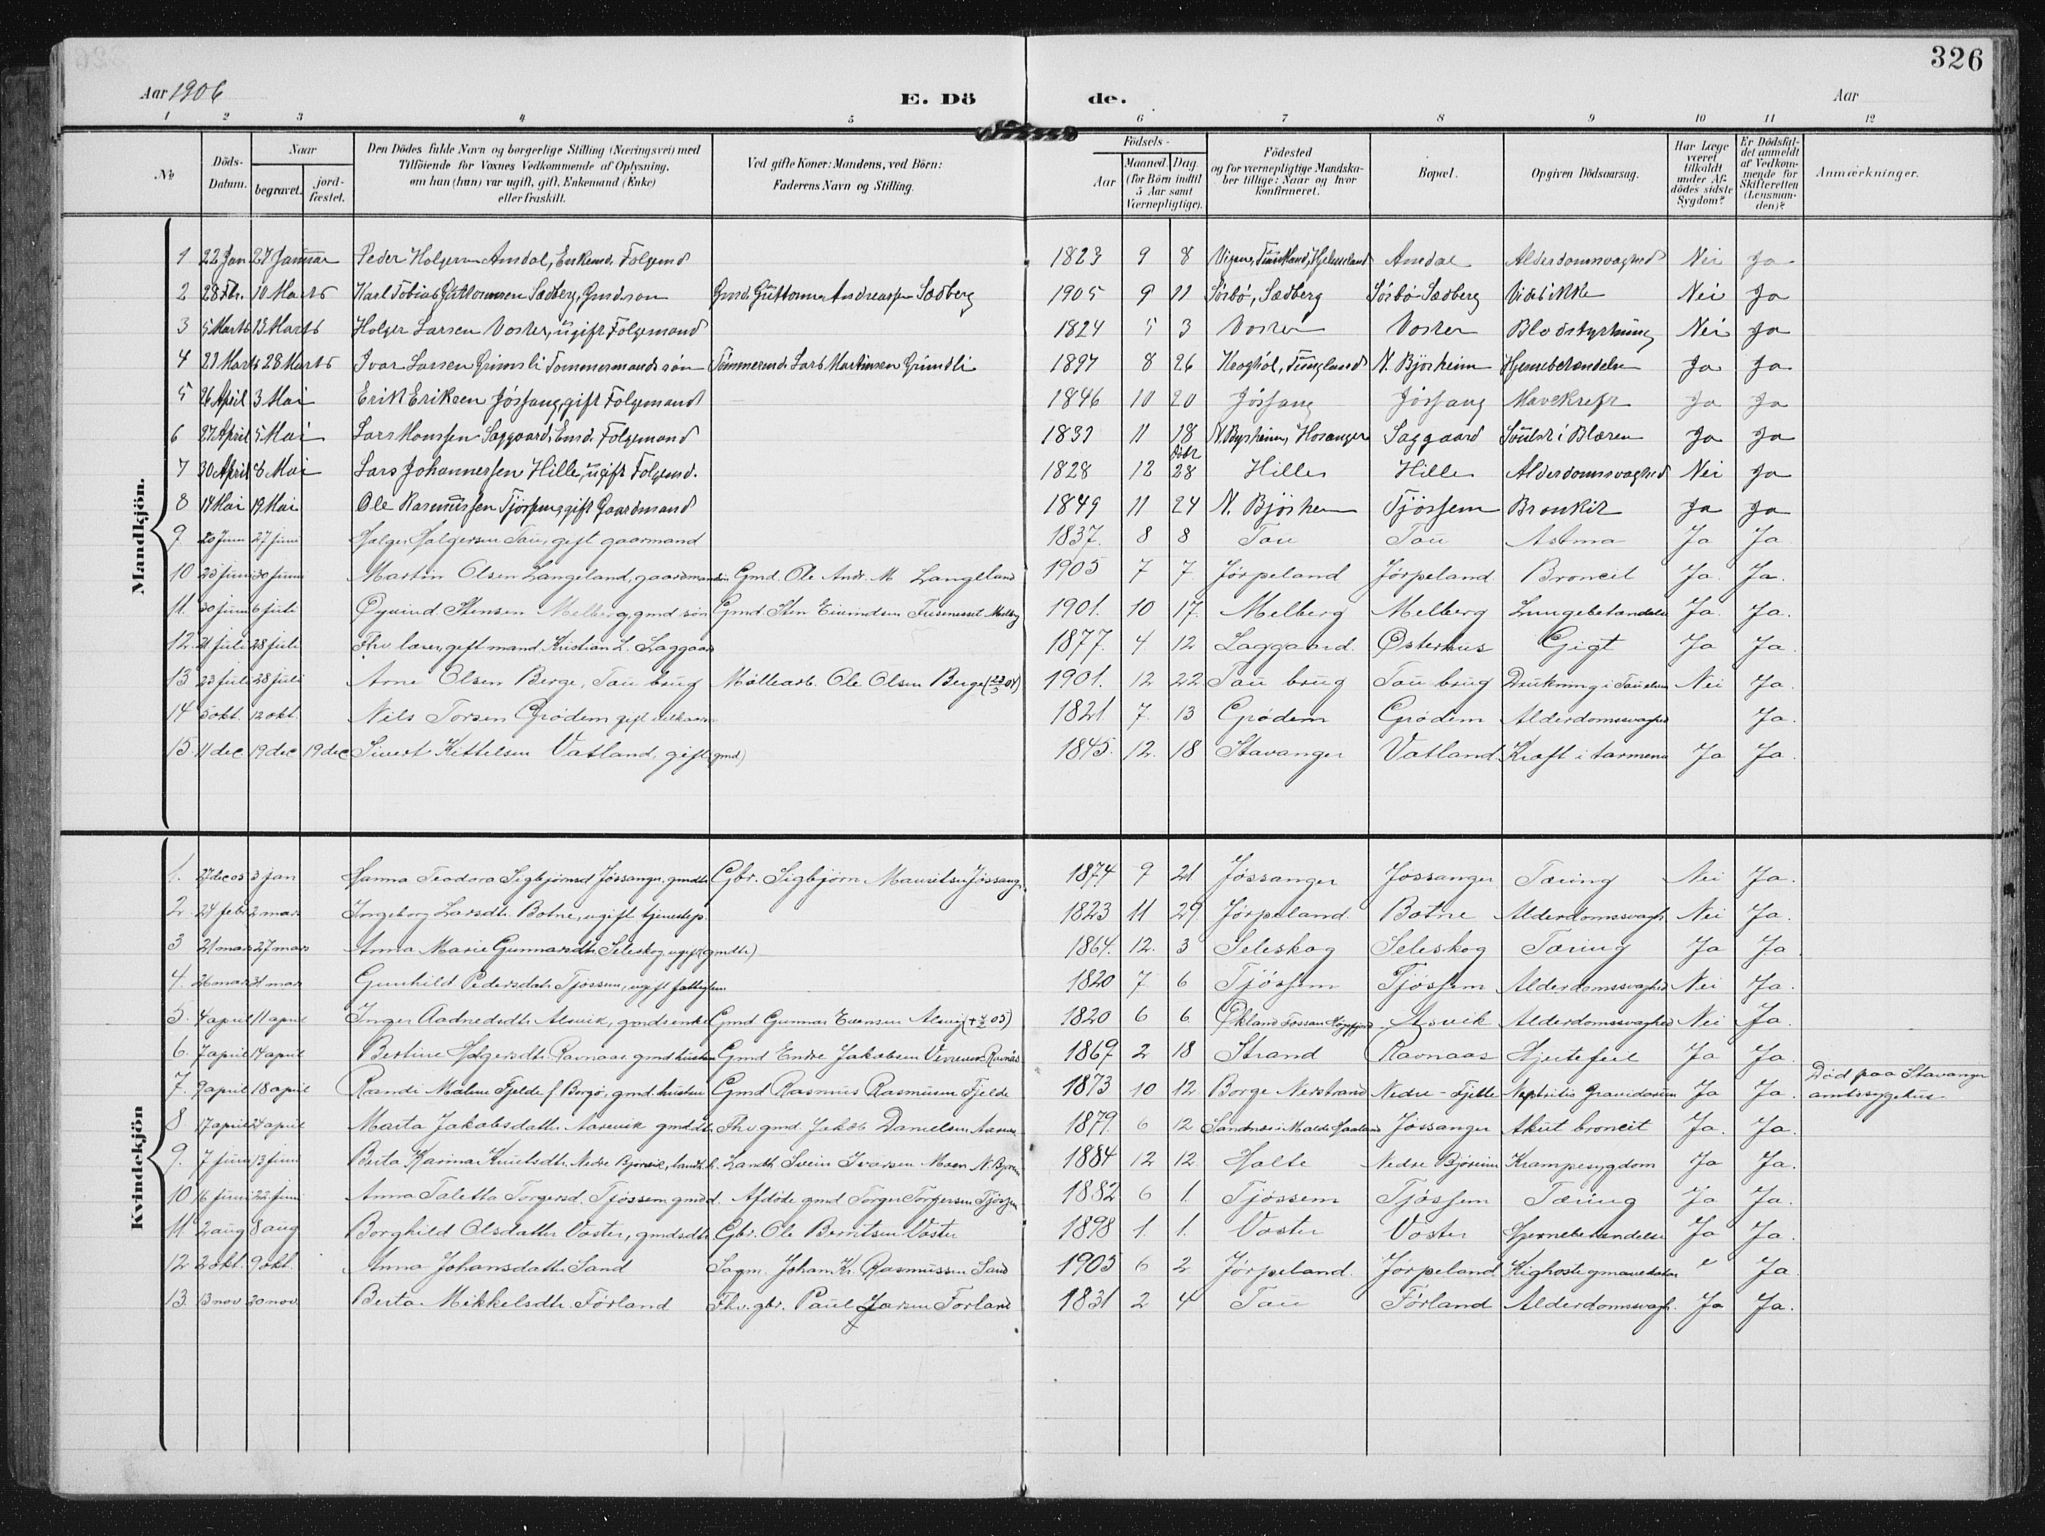 326
Aar 1906
E. Dö
de.
Aar
1 2 3 4 5 6 7 8 9 10 11 12
No
Döds-Datum.
Naar
begravet.
jord-fæstet.
Den Dödes fulde Navn og borgerlige Stilling (Næringsvei) med
Tilföiende for Voxnes Vedkommende af Oplysning,
om han (hun) var ugift, gift, Enkemand (Enke)
eller fraskilt.
Ved gifte Koner: Mandens, ved Börn:
Faderens Navn og Stilling.
Födsels-
Aar
Maaned Dag
(for Börn indtil
5 Aar samt
Værnepligtige).
Födested
og for værnepligtige Mandska-
ber tillige: Naar og hvor
konfirmeret.
Bopæl.
Opgiven Dödsaarsag.
Har Læge
været
tilkaldt
under Af-
dödes sidste
Sygdom?
Er Dödsfal-
det anmeldt
af Vedkom-
mende for
Skifteretten
(Lensman-
den)?
Anmærkninger.
Mandkjön.
1 22 Jan 27 Januar Peder Holgersen Amdal, Enkemd. Folgemd 1823 9 8 Amdal Alderdomsvaghed Nei Ja
2 28 Fbr. 10 Marts Karl Tobias Guttormsen Sedberg, Gmdsøn Gmd. Guttorm Andreassen Sedberg 1905 9 11 Sörbö, Sedberg Sörbö Sedberg Vides ikke Nei Ja
3 5 Marts 13 Marts Holger Larsen Voster, ugift Folgemand 1824 5 3 Voster Voster Blodstyrtning Nei Ja
4 21 Marts 28 Marts Ivar Larsen Tømmermandssøn Tömmermd. Lars Martinsen Grimsli 1897 8 26 Kroghöl, Tungland N. Björheim Hjernebetændelse Ja Ja
5 26 April 3 Mai Erik Eriksen Jösfang, gift Folgemand 1846 10 20 Jösfang Jösfang Mavekreft Ja Ja
6 27 April 5 Mai Lars Monssen Saggaard, Enkmd. Folgemand 1831 11 18 N. Byrheim, Saggaard Svulst i Blæren Ja Ja
7 30 April 6 Mai Lars Johannessen Hille, ugift Folgemd. 1828 12 28 Hille Hille Alderdomssvaghed Nei Ja
8 14 Mai 19 Mai Ole Rasmussen Tjössem, gift Gaardmand 1849 11 24 N. Björhem Tjössem Bronkit Ja Ja
9 20 Juni 27 juni Holger Holgersen Tau, gift gaarmand 1837. 8 8 Tau Tau Astma Ja Ja
10 25 Juni 30 Juni Martin Olsen Langeland, gaardmandsön Gmd. Ole Andr. M Langeland 1905 7 7 Jörpeland Jörpeland Broncit Ja. Ja.
11. 30 juni 6 juli Öyvind Stensen Melberg, gmd sön Gmd. Sten Eivindsen Melberg 1901. 10 17. Melberg Melberg Lungebetændelse Ja. Ja.
12. 21 juli 28 juli Fhv lærer, gift mand. Kristian L. Laggaard 1877. 4 12 Laggaard Østerhus Gigt Ja Ja.
13 23 juli 28 juli Arne Olsen Berge, Tau brug Møllearb. Ole Olsen Berge 1901. 12 22 Tau brug Tau brug Drukning i Tauelven Nei Ja.
14 5 okt. 12 okt. Nils Torsen Grödem gift 1821 7 13 Grödem Grödem Alderdomssvaghed Ja.
15 11 dec 19 dec 19 dec Sivert Kittelsen Vatland, gift (gmd) 1845. 12. 18 Stavanger Vatland Kræft i tarmene Ja Ja.
Kvindekjön
1. 27 dec 05 3 jan Hanna Teodora Sigbjörnsd Jössanger, gmdtr Gbr. Sigbjörn Mauritsen Jössang 1874 9 21 Jössanger Jossanger Tæring Nei Ja.
2. 24 febr 2 mar Ingeborg Larsdtr. Botne, ugift tjenestep. 1823 11 29 Jörpeland Botne Alderdomssvagh Nei Ja.
3 21 mar 27 mar Anna Marie Gunnarsdtr. Seleskog ugift (gmdtr) 1864. 12. 3 Seleskog Seleskog Tæring Ja Ja
4. 26 mar 31 mar Gunhild Pedersdatr. Tjössem, ugift fattiglem 1820 7 6 Tjössem Tjössem Alderdomssvaghed Nei Ja.
5. 4 april 11 april Inger Aadnedsdtr Alsvik, gmdsenke Gmd Gunnar Evensen Alsvig 1820 6 6 Økland Fossan Høgsfjord Alsvik Alderdomssvaghed Nei Ja.
6. 7 april 14 april Bertine Holgersdtr. Ravnaas gmd hustru Gmd Endre Jakobsen Ravnås 1867 2 18 Strand Ravnaas Hjertefeil Ja Ja.
7. 9 april 18 april Randi Malene Fjelde f. Borgö, gmd. hustru Gmd Rasmus Rasmussen Fjelde 1873 10 12 Borge Nerstrand Nedre-Fjelle Nephritis Gravidarum Ja Ja. Död paa Stavanger amtssygehus
8 17 april 24 april Marta Jakobsdatter Aasevik gmd dtr. Fhv. gmd. Jakob Danielsen 1879. 6 12 Jössanger Akut broncit Ja. Ja.
9. 7 juni 13 juni Berta Karina Knutsdtr. Nedre Bjørheim, landh. h. Landh Svein Ivarsen Moen N. Bjørm 1884 12 12 Halte Nedre Björeim Krampesygdom Ja Ja.
10 16 juni 22 juni Anna Taletta Torgersd. Tjössem, gmd d. Afdöde gmd Torger Torgersen Tjössem 1882 6 1. Tjössem Tjössem Tæring Ja Ja.
11. 2 aug 8 aug Borghild Olsdatter Voster, gmdsdtr Gbr. Ole Berntsen Voster 1898 1. 1. Voster Voster Hjernebetændelse Ja Ja.
12 2 okt. 9 okt. Anna Johansdatter Sand Sagm. Johan Kr. Rasmussen Sand 1905 6 2 Jörpeland. Jorpeland Ja.
13. 13 nov 20 nov. Berta Mikkelsdtr. Förland Fhv. gbr. Paul Larsen Forland 1831 2 4 Tau Förland Alderdomssvagh. Ja Ja.